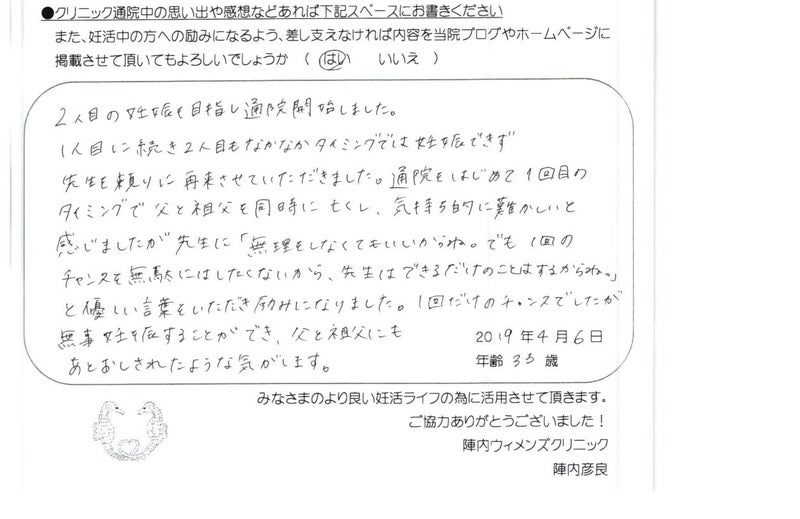 ●クリニック通院中の思い出や感想などあれば下記スペースにお書きください
また、妊活中の方への励みになるよう、差し支えなければ内容を当院ブログやホームページに
掲載させて頂いてもよろしいでしょうか （ はい いいえ ）
2人目の妊娠を目指し通院開始しました。
1人目に続き2人目もなかなかタイミングでは妊娠できず
先生を頼りに再来させていただきました。通院をはじめて1回目の
タイミングで父と祖父を同時に亡くし、気持ち的に難かしいと
感じましたが先生に「無理をしなくてもいいからね。でも1回の
チャンスを無駄にはしたくないから、先生はできるだけのことはするからねっ」
と優しい言葉をいただき励みになりました。1回だけのチャンスでしたが
無事妊娠することができ、父と祖父にも
あとおしされたような気がします。
2019年4月6日
年齢 35 歳
みなさまのより良い妊活ライフの為に活用させて頂きます。
ご協力ありがとうございました！
陣内ウィメンズクリニック
陣内彦良